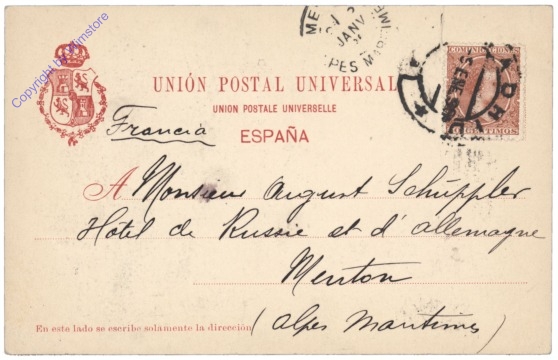 Copyright by Wimstore
JANV
ALPES MARITIMES
COMUNICACIONES
MADRID
UNIÓN POSTAL UNIVERSAL
UNION POSTALE UNIVERSELLE
ESPAÑA
Francia
A Monsieur August Schüppler
Hotel de Russie et d'allemagne
Menton
(Alpes Maritimes)
En este lado se escribe solamente la dirección